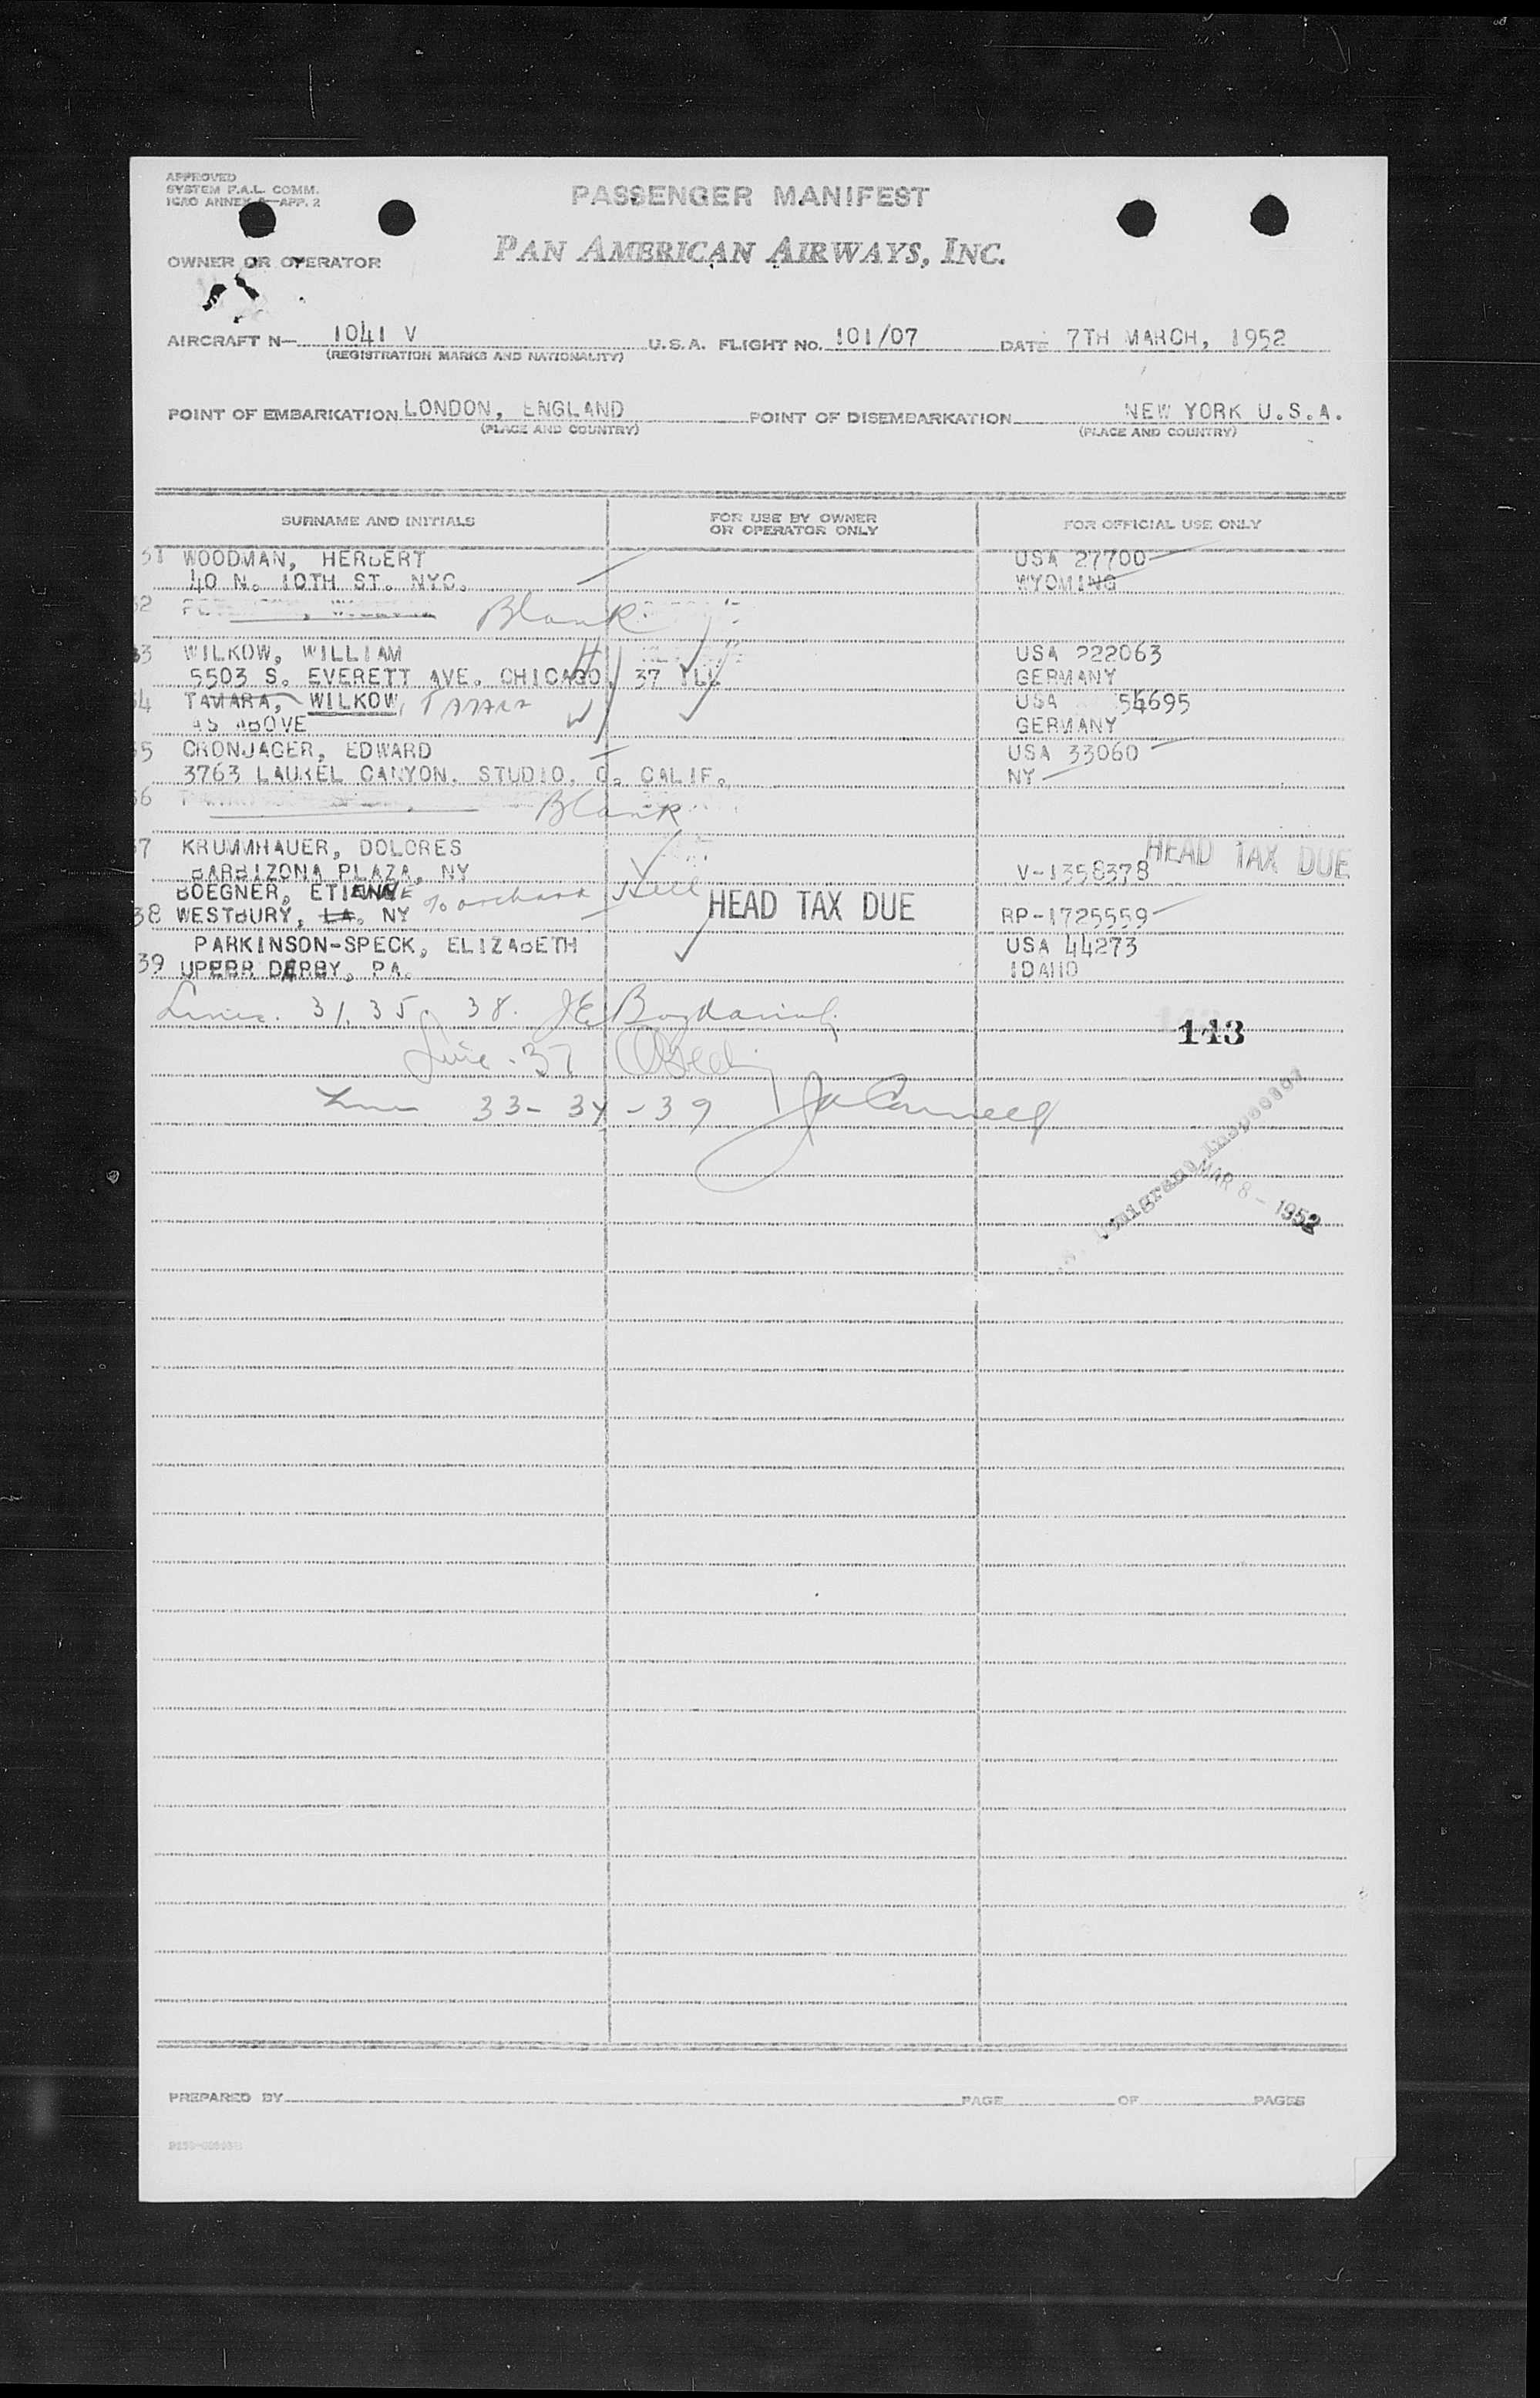 APPROVED
SYSTEM F.A.L. COMM.
ICAO ANNEX 9—APP. 2
PASSENGER MANIFEST
PAN AMERICAN AIRWAYS, INC.
OWNER OR OPERATOR
AIRCRAFT N— 1041 V U.S.A. FLIGHT NO. 101/07 DATE 7TH MARCH, 1952
(REGISTRATION MARKS AND NATIONALITY)
POINT OF EMBARKATION LONDON, ENGLAND POINT OF DISEMBARKATION NEW YORK U.S.A.
(PLACE AND COUNTRY) (PLACE AND COUNTRY)
SURNAME AND INITIALS FOR USE BY OWNER OR OPERATOR ONLY FOR OFFICIAL USE ONLY
31 WOODMAN, HERBERT USA 27700
40 N. 10TH ST. NYC. WYOMING
32 Blank
33 WILKOW, WILLIAM USA 222063
5503 S. EVERETT AVE. CHICAGO, 37 ILL GERMANY
34 TAMARA, WILKOW, Tamara USA 54695
AS ABOVE GERMANY
35 CRONJAGER, EDWARD USA 33060
3763 LAUREL CANYON. STUDIO. C. CALIF. NY
36 Blank
37 KRUMMHAUER, DOLORES HEAD TAX DUE
BARBIZONA PLAZA, NY V-1358378
BOEGNER, ETIENNE % orchard Hill
38 WESTBURY, LA. NY HEAD TAX DUE RP-1725559
PARKINSON-SPECK, ELIZABETH USA 44273
39 UPEBR DERBY, PA. IDAHO
Lines. 31. 35. 38.
143
Line - 37
Line 33 - 34 - 39
Immigrant Inspector
MAR 8 - 1952
PREPARED BY PAGE OF PAGES